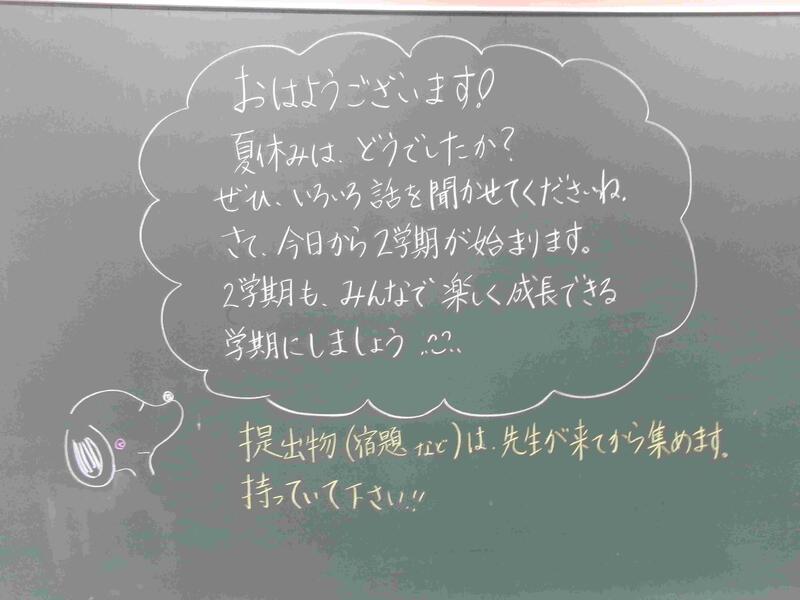 おはようございます!
夏休みは、どうでしたか?
ぜひ、いろいろ話を聞かせてくださいね。
さて、今日から2学期が始まります。
2学期も、みんなで楽しく成長できる
学期にしましょう
提出物(宿題など)は、先生が来てから集めます。
持っていて下さい!!